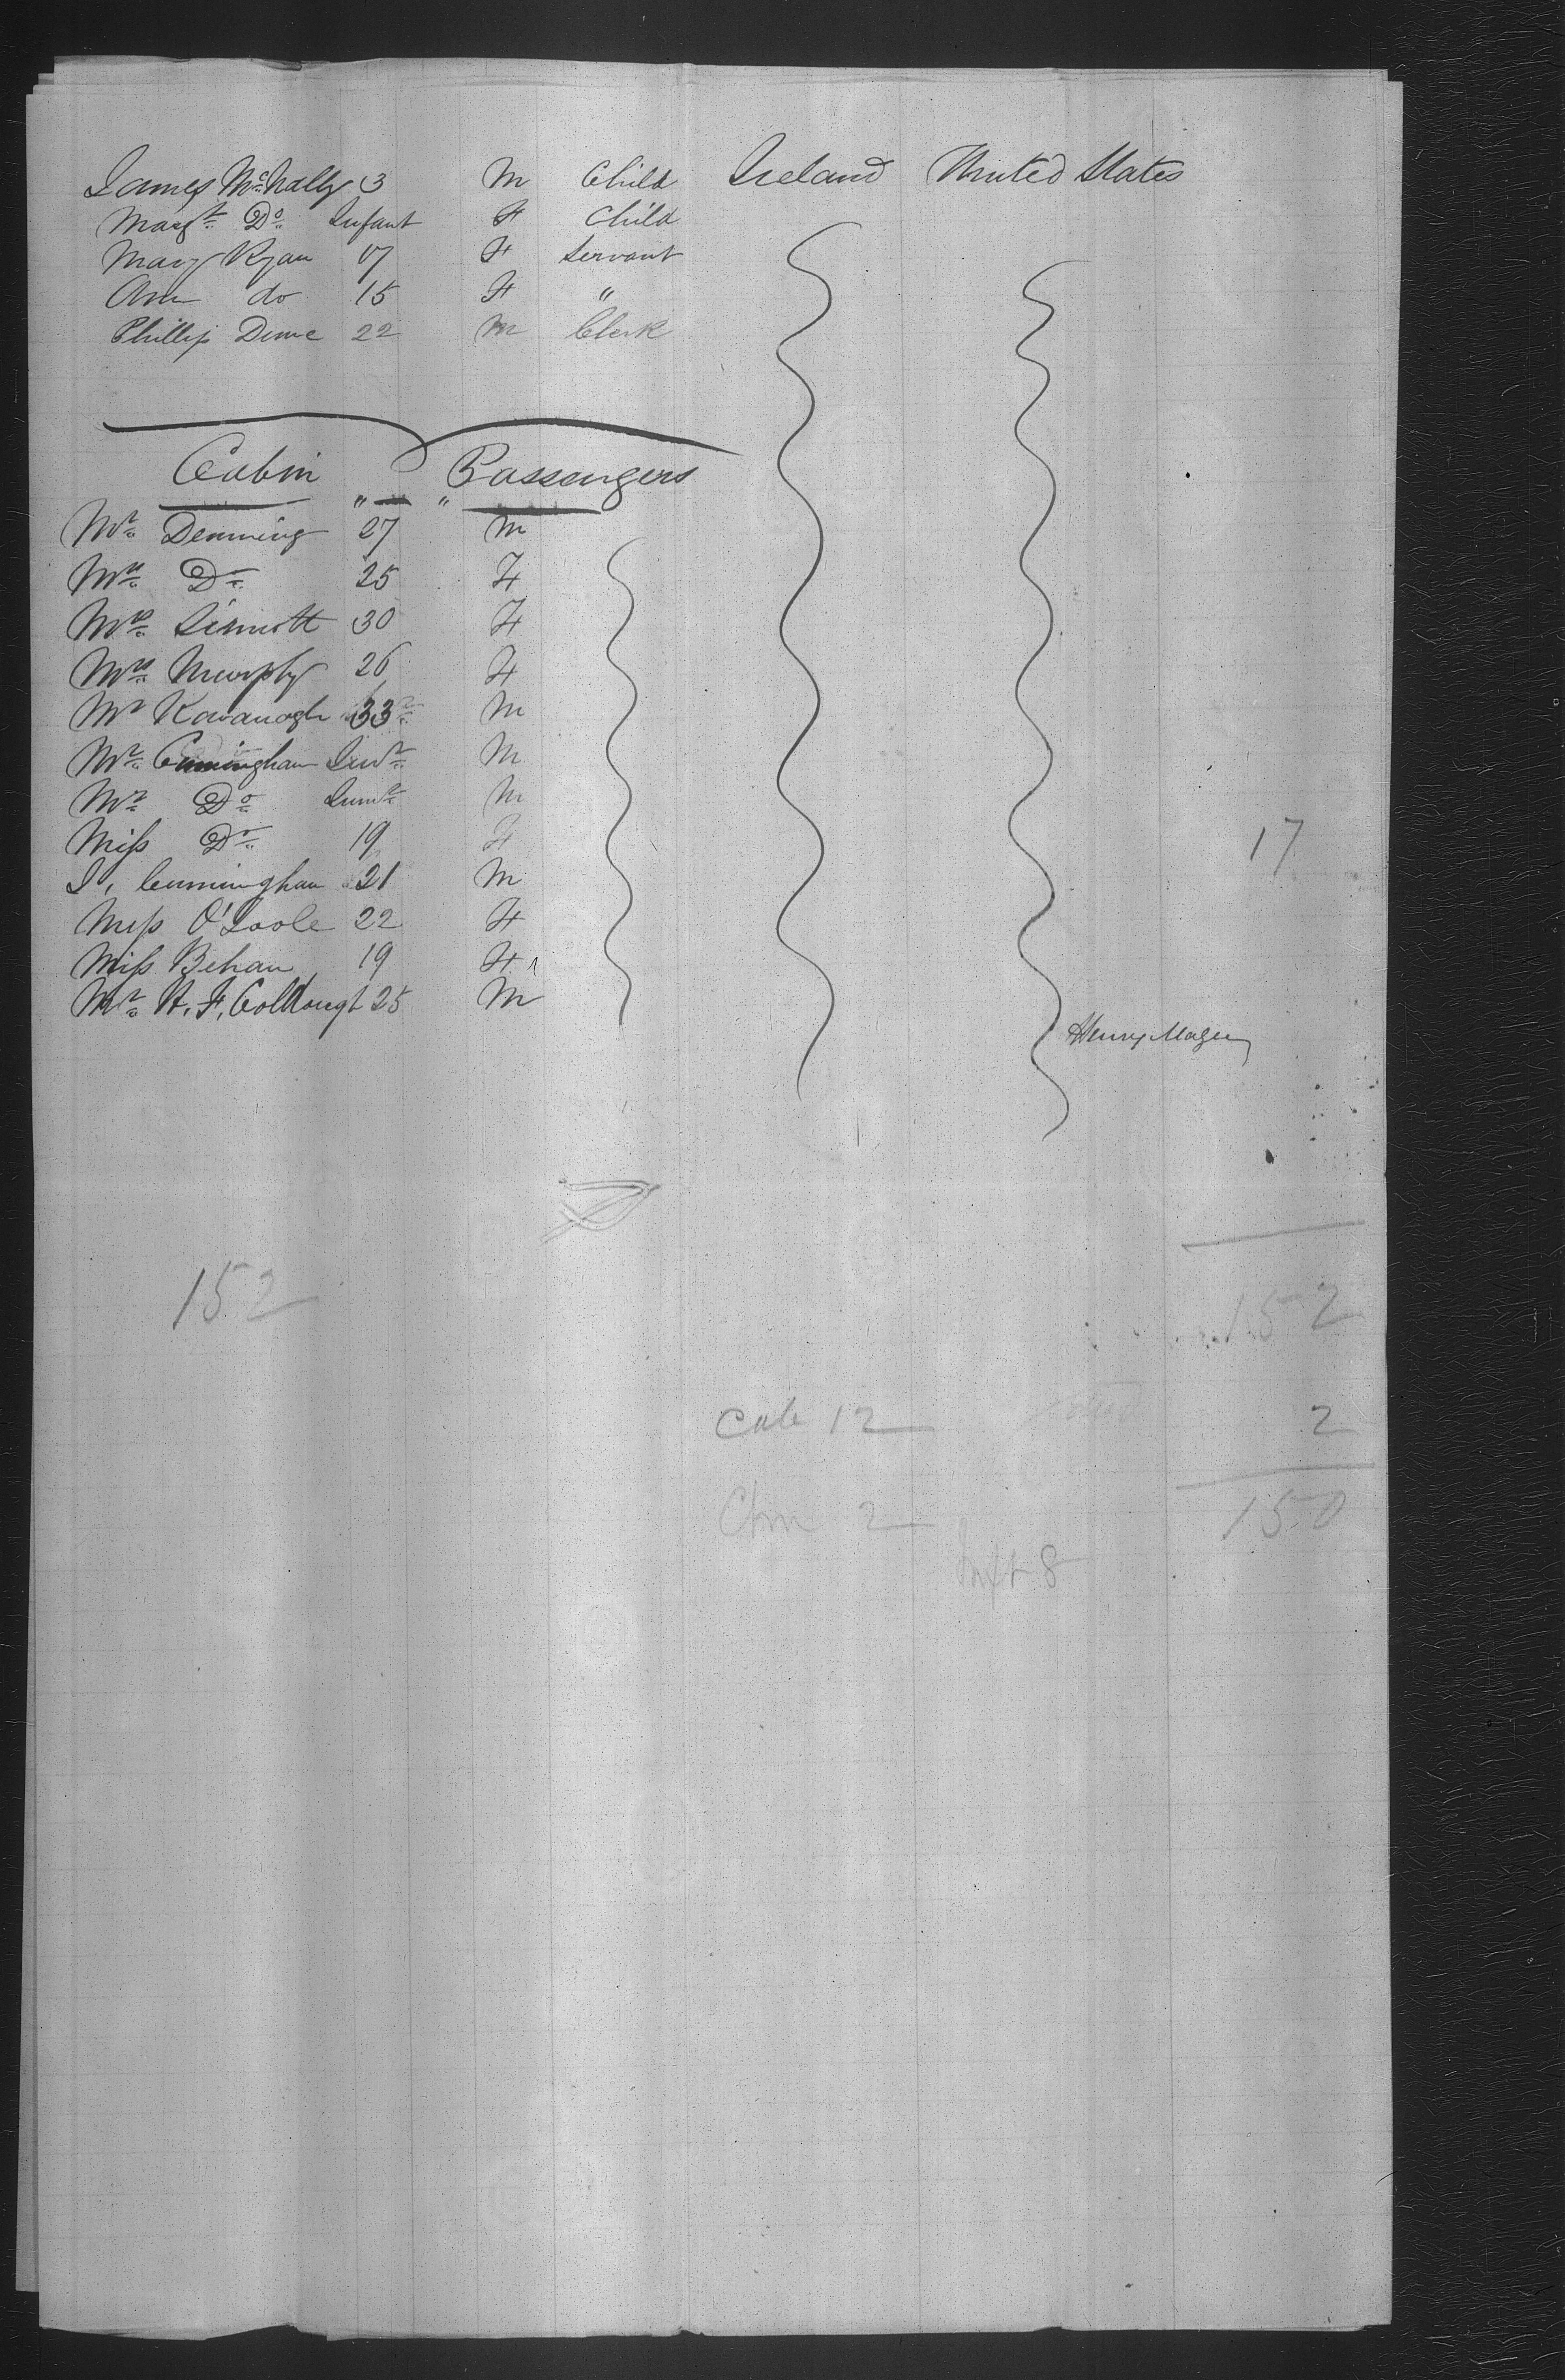 James McNally 3 M Child Ireland United States
Margt Do Infant F Child
Mary Ryan 17 F Servant
Ann do 15 F "
Phillip Dunne 22 M Clerk
Cabin Passengers
Mr Denning 27 M
Mrs Do 25 F
Mrs Sinnott 30 F
Mrs Murphy 26 F
Mr Kavanagh 33 M
Mr Cunningham M
Mr Do M
Miss Do 19 F
17
J. Cunningham 21 M
Miss O'Toole 22 F
Miss Behan 19 F
Mr H. F. 25 M
Henry Magee
152
152
Cab 12
2
Chn 2
150
Inft 8